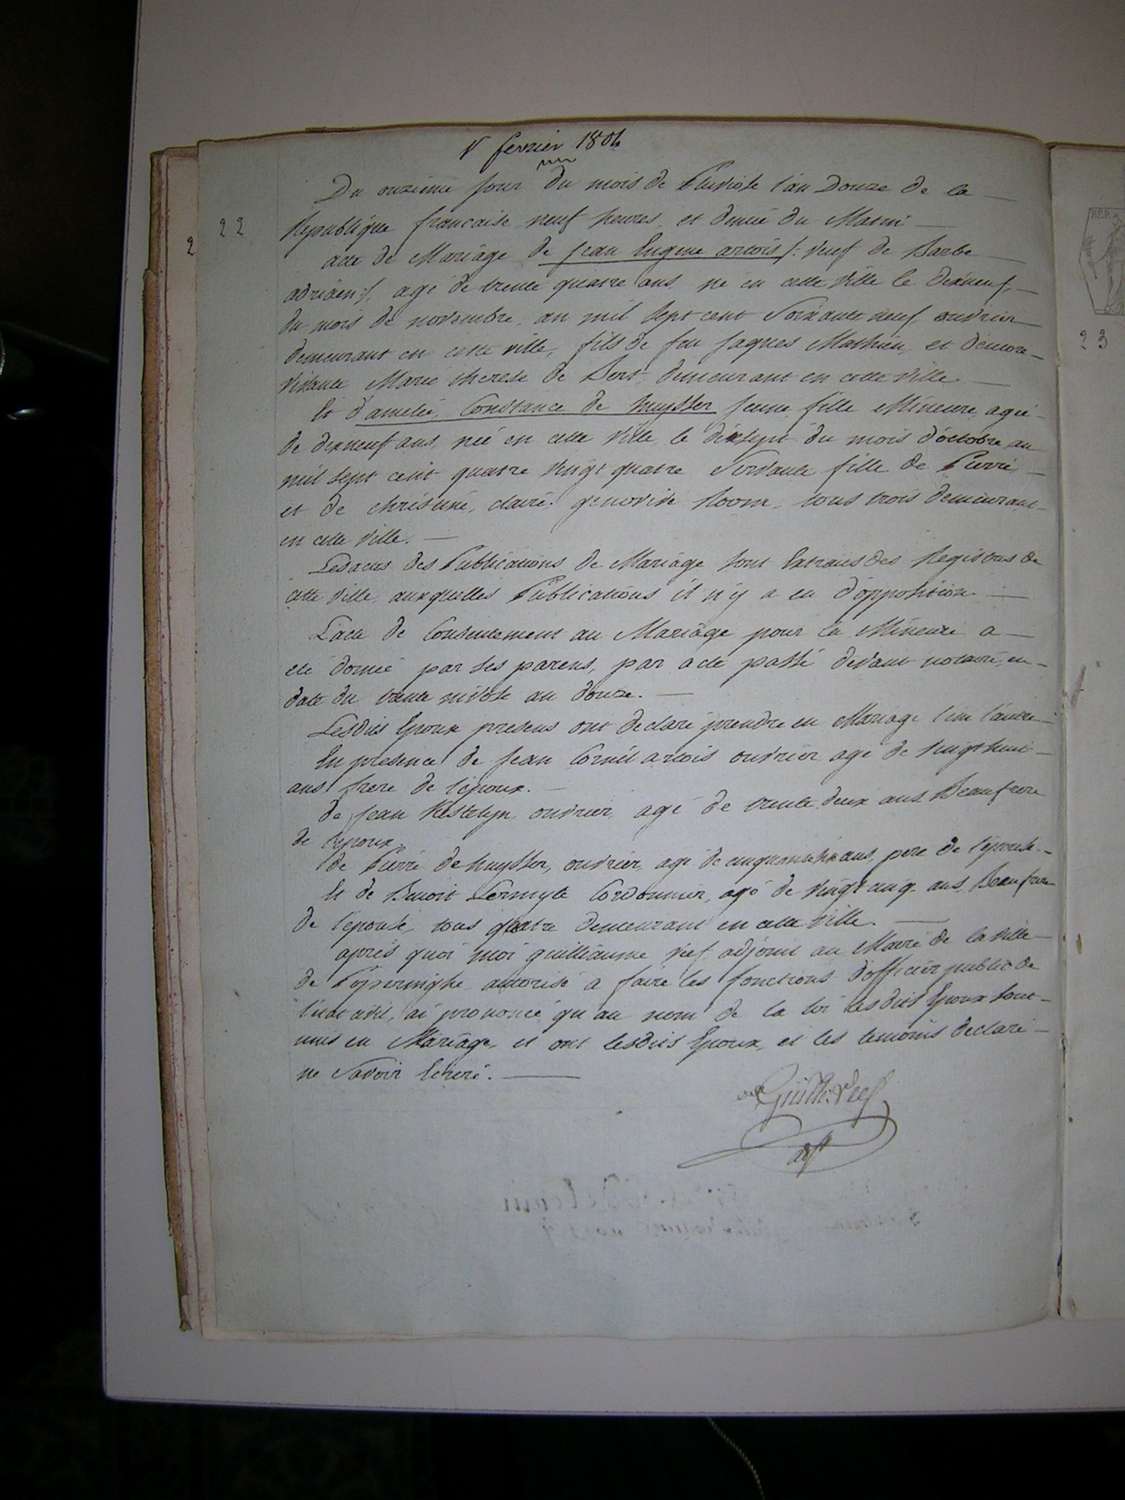 1 fevrier 1804
Du onzieme jour du mois de Pluviose l'an Douze de la
22
Republique francaise neuf heures et demie du Matin
2
acte de Mariage de Jean Eugene artois /: veuf de Barbe
adriaen :/, agé de trente quatre ans né en cette ville le dixneuf
du mois de novembre an mil sept cent soixante neuf ouvrier
demeurant en cette ville, fils de feu Jaques Mathieu, et d'encore
vivante Marie therese de Bert, demeurant en cette ville
Et d'amelie Constance de huysser jeune fille Mineure, agée
de dixneuf ans, née en cette ville le dixsept du mois d'octobre an
mil sept cent quatre vingt quatre servante fille de Pierre
et de christine, claire genovive hoom, tous trois demeurant
en cette ville.
Les actes des Publications de Mariage sont Extraits des Registres de
cette ville, auxquelles Publications il n'y a eu d'opposition
L'acte de Consentement au Mariage pour la Mineure a
eté donné par ses parens, par acte passé devant notaire, en
date du trente nivose an douze.
Lesdits Epoux presens ont declaré prendre en Mariage l'un l'autre
En presence de Jean Cornil artois ouvrier agé de vingt huit
ans frere de l'epoux.
de Jean Kestelyn ouvrier agé de trente deux ans Beaufrere
de l'epoux
de Pierre de huysser, ouvrier, agé de cinquante ans, pere de l'épouse
Et de Benoit Lermyte Cordonnier, agé de vingt cinq ans, Beaufrere
de l'epouse, tous quatre demeurant en cette ville.
après quoi moi guilliaume vief adjoint au Maire de la ville
de Poperinghe autorisé a faire les fonctions d'officier public de
l'etat civil, ai prononcé qu'au nom de la loi lesdits Epoux sont
unis en Mariage, et ont lesdits Epoux, et les temoins declaré
ne savoir Ecrire.
Guille Vief
adjt
23